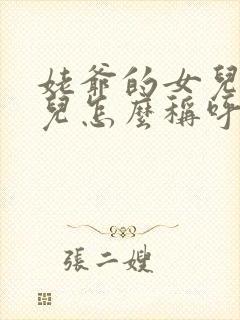 姥爺的女兒
兒怎麼稱呼
張二嫂